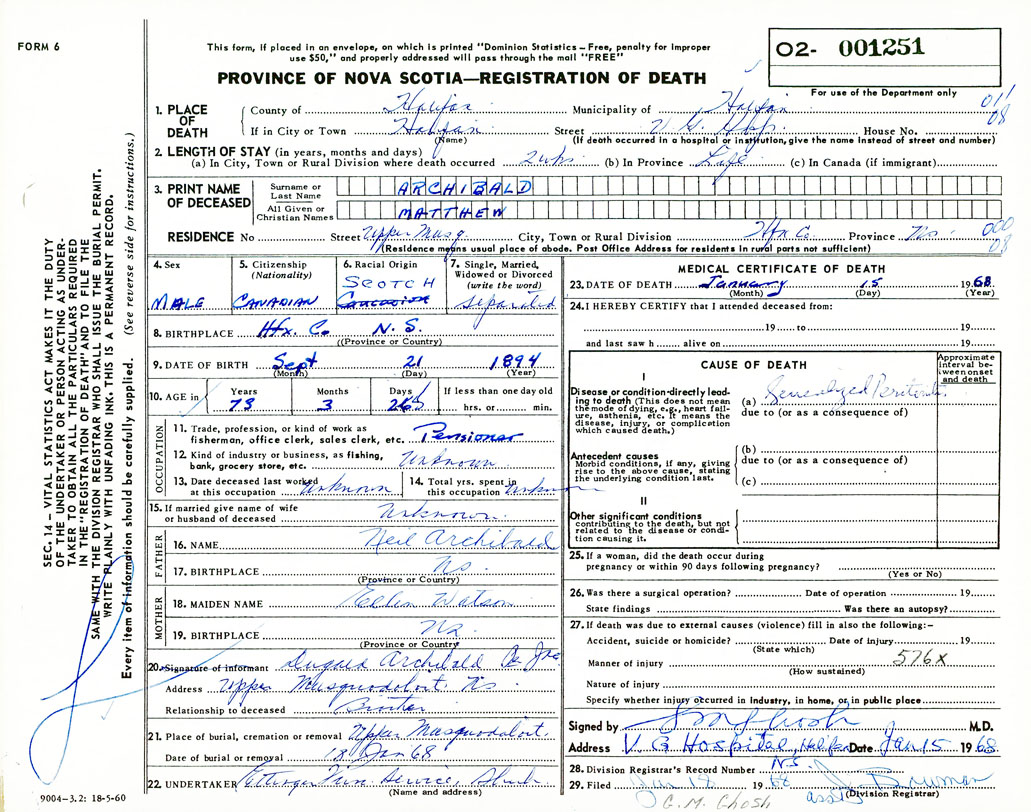 FORM 6
This form, if placed in an envelope, on which is printed "Dominion Statistics – Free, penalty for improper
use $50," and properly addressed will pass through the mail "FREE"
PROVINCE OF NOVA SCOTIA—REGISTRATION OF DEATH
02- 001251
For use of the Department only
011
08
1. PLACE OF DEATH
County of Halifax Municipality of Halifax
If in City or Town Halifax Street V. G. Hosp. House No.
(Name) (If death occurred in a hospital or institution, give the name instead of street and number)
2. LENGTH OF STAY (in years, months and days)
(a) In City, Town or Rural Division where death occurred 2 wks (b) In Province Life (c) In Canada (if immigrant)
3. PRINT NAME OF DECEASED
Surname or Last Name ARCHIBALD
All Given or Christian Names MATTHEW
RESIDENCE No Street Upper Musq. City, Town or Rural Division Hfx Co. Province Ns
000
08
(Residence means usual place of abode. Post Office Address for residents in rural parts not sufficient)
4. Sex MALE
5. Citizenship (Nationality) CANADIAN
6. Racial Origin SCOTCH
7. Single, Married, Widowed or Divorced (write the word) separated
8. BIRTHPLACE Hfx. Co. N. S.
(Province or Country)
9. DATE OF BIRTH Sept 21 1894
(Month) (Day) (Year)
10. AGE in Years Months Days If less than one day old
73 3 hrs. or min.
OCCUPATION
11. Trade, profession, or kind of work as
fisherman, office clerk, sales clerk, etc. Pensioner
12. Kind of industry or business, as fishing,
bank, grocery store, etc. Unknown
13. Date deceased last worked
at this occupation Unknown
14. Total yrs. spent in
this occupation Unknown
15. If married give name of wife
or husband of deceased Unknown
FATHER
16. NAME Neil Archibald
17. BIRTHPLACE Ns
(Province or Country)
MOTHER
18. MAIDEN NAME Ellen Watson
19. BIRTHPLACE Ns
(Province or Country)
20. Signature of informant Archibald
Address Upper Musquodoboit Ns
Relationship to deceased Brother
21. Place of burial, cremation or removal Upper Musquodoboit
Date of burial or removal 18 Jan 68
22. UNDERTAKER Service,
(Name and address)
9004-3.2: 18-5-60
SEC. 14 – VITAL STATISTICS ACT MAKES IT THE DUTY
OF THE UNDERTAKER OR PERSON ACTING AS UNDER-
TAKER TO OBTAIN ALL THE PARTICULARS REQUIRED
IN THE "REGISTRATION OF DEATH" AND TO FILE THE
SAME WITH THE DIVISION REGISTRAR WHO SHALL ISSUE THE BURIAL PERMIT.
WRITE PLAINLY WITH UNFADING INK. THIS IS A PERMANENT RECORD.
Every item of information should be carefully supplied. (See reverse side for instructions.)
MEDICAL CERTIFICATE OF DEATH
23. DATE OF DEATH January 15 1968
(Month) (Day) (Year)
24. I HEREBY CERTIFY that I attended deceased from:
19 to 19
and last saw h alive on 19
CAUSE OF DEATH
Approximate interval between onset and death
I
Disease or condition directly lead-
ing to death (This does not mean
the mode of dying, e.g., heart fail-
ure, asthenia, etc. It means the
disease, injury, or complication
which caused death.)
(a) Generalized Peritonitis
due to (or as a consequence of)
Antecedent causes
Morbid conditions, if any, giving
rise to the above cause, stating
the underlying condition last.
(b)
due to (or as a consequence of)
(c)
II
Other significant conditions
contributing to the death, but not
related to the disease or condi-
tion causing it.
25. If a woman, did the death occur during
pregnancy or within 90 days following pregnancy?
(Yes or No)
26. Was there a surgical operation? Date of operation 19
State findings Was there an autopsy?
27. If death was due to external causes (violence) fill in also the following:–
Accident, suicide or homicide? Date of injury 19
(State which)
576X
Manner of injury
(How sustained)
Nature of injury
Specify whether injury occurred in industry, in home, or in public place
Signed by Ghosh M.D.
Address V. G Hospital, Halifax Date Jan 15 1968
28. Division Registrar's Record Number N.S.
29. Filed Jan 1968 Bowman
(Division Registrar)
asst
G. M. Ghosh